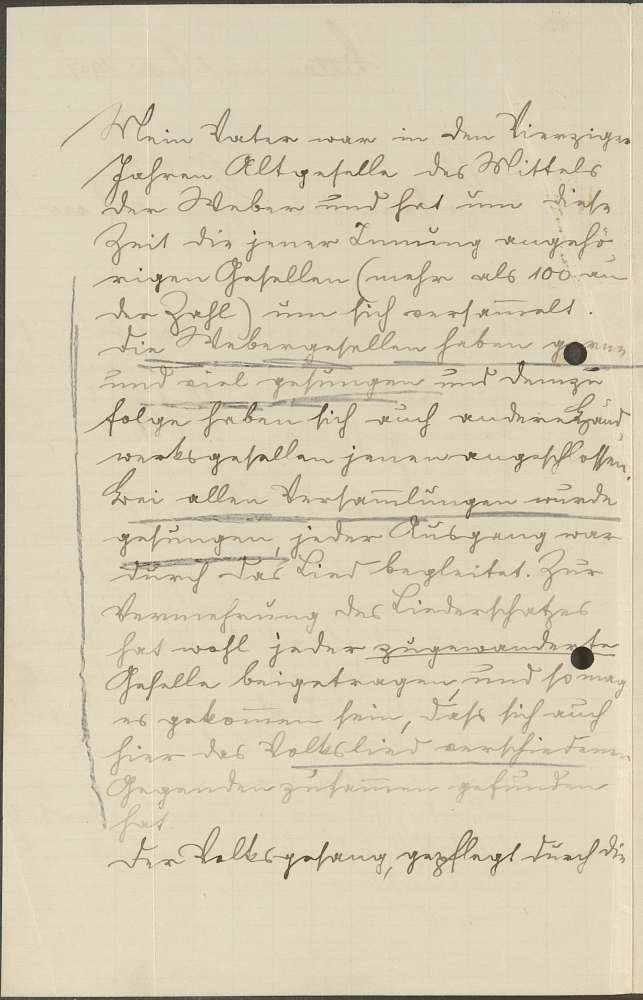 Mein Vater war in den Vierziger
Jahren Altgeselle des Mittels
der Weber und hat um diese
Zeit die jener Innung angehö-
rigen Gesellen (mehr als 100 an
der Zahl) um sich versam̅elt.
Die Webergesellen haben gerne
und viel gesungen und demzu
folge haben sich auch andere Hand
werksgesellen jenen angeschlossen.
Bei allen Versam̅lungen wurde
gesungen, jeder Ausgang war
durch das Lied begleitet. Zur
Vermehrung des Liederschatzes
hat wohl jeder zugewanderte
Geselle beigetragen, und so mag
es gekom̅en sein, dass sich auch
hier das Volkslied verschiedener
Gegenden zusam̅en gefunden
hat.
Der Volksgesang, gepflegt durch die